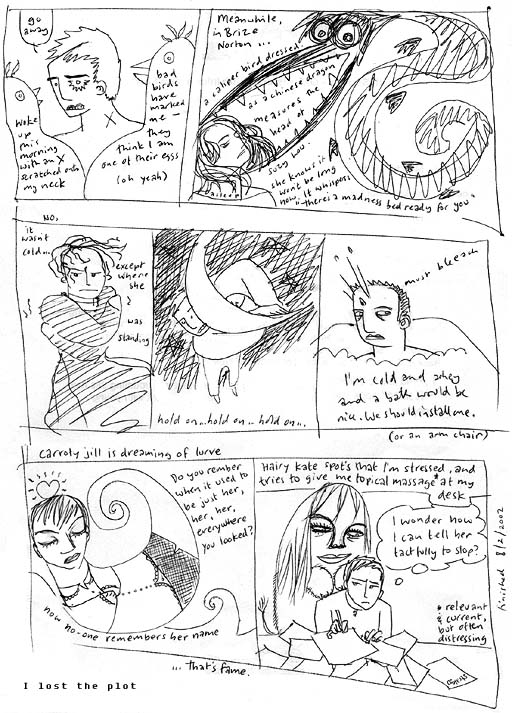 go
away
woke
up
this
morning
with an X
scratched onto
my neck
bad
birds
have
marked
me —
they
think I am
one of their eggs
(oh yeah)
Meanwhile,
in Brize
Norton ...
a caliper bird dressed
as a chinese dragon
measures the
head of
Susy Wu.
she knows it
won't be long
now, it whispers
"there's a madness bed ready for you"
NO,
it
wasn't
cold...
except
where
she
was
standing
hold on...hold on...hold on..
must bleach
I'm cold and achey
and a bath would be
nice. We should install one.
(or an arm chair)
Carroty jill is dreaming of lurve
Do you rember
when it used to
be just her,
her, her,
everywhere
you looked?
now no-one remembers her name
... that's fame.
Hairy kate spot's that I'm stressed, and
tries to give me topical massage* at my
desk
I wonder how
I can tell her
tactfully to stop?
* relevant
& current,
but often
distressing
8/2/2002
I lost the plot